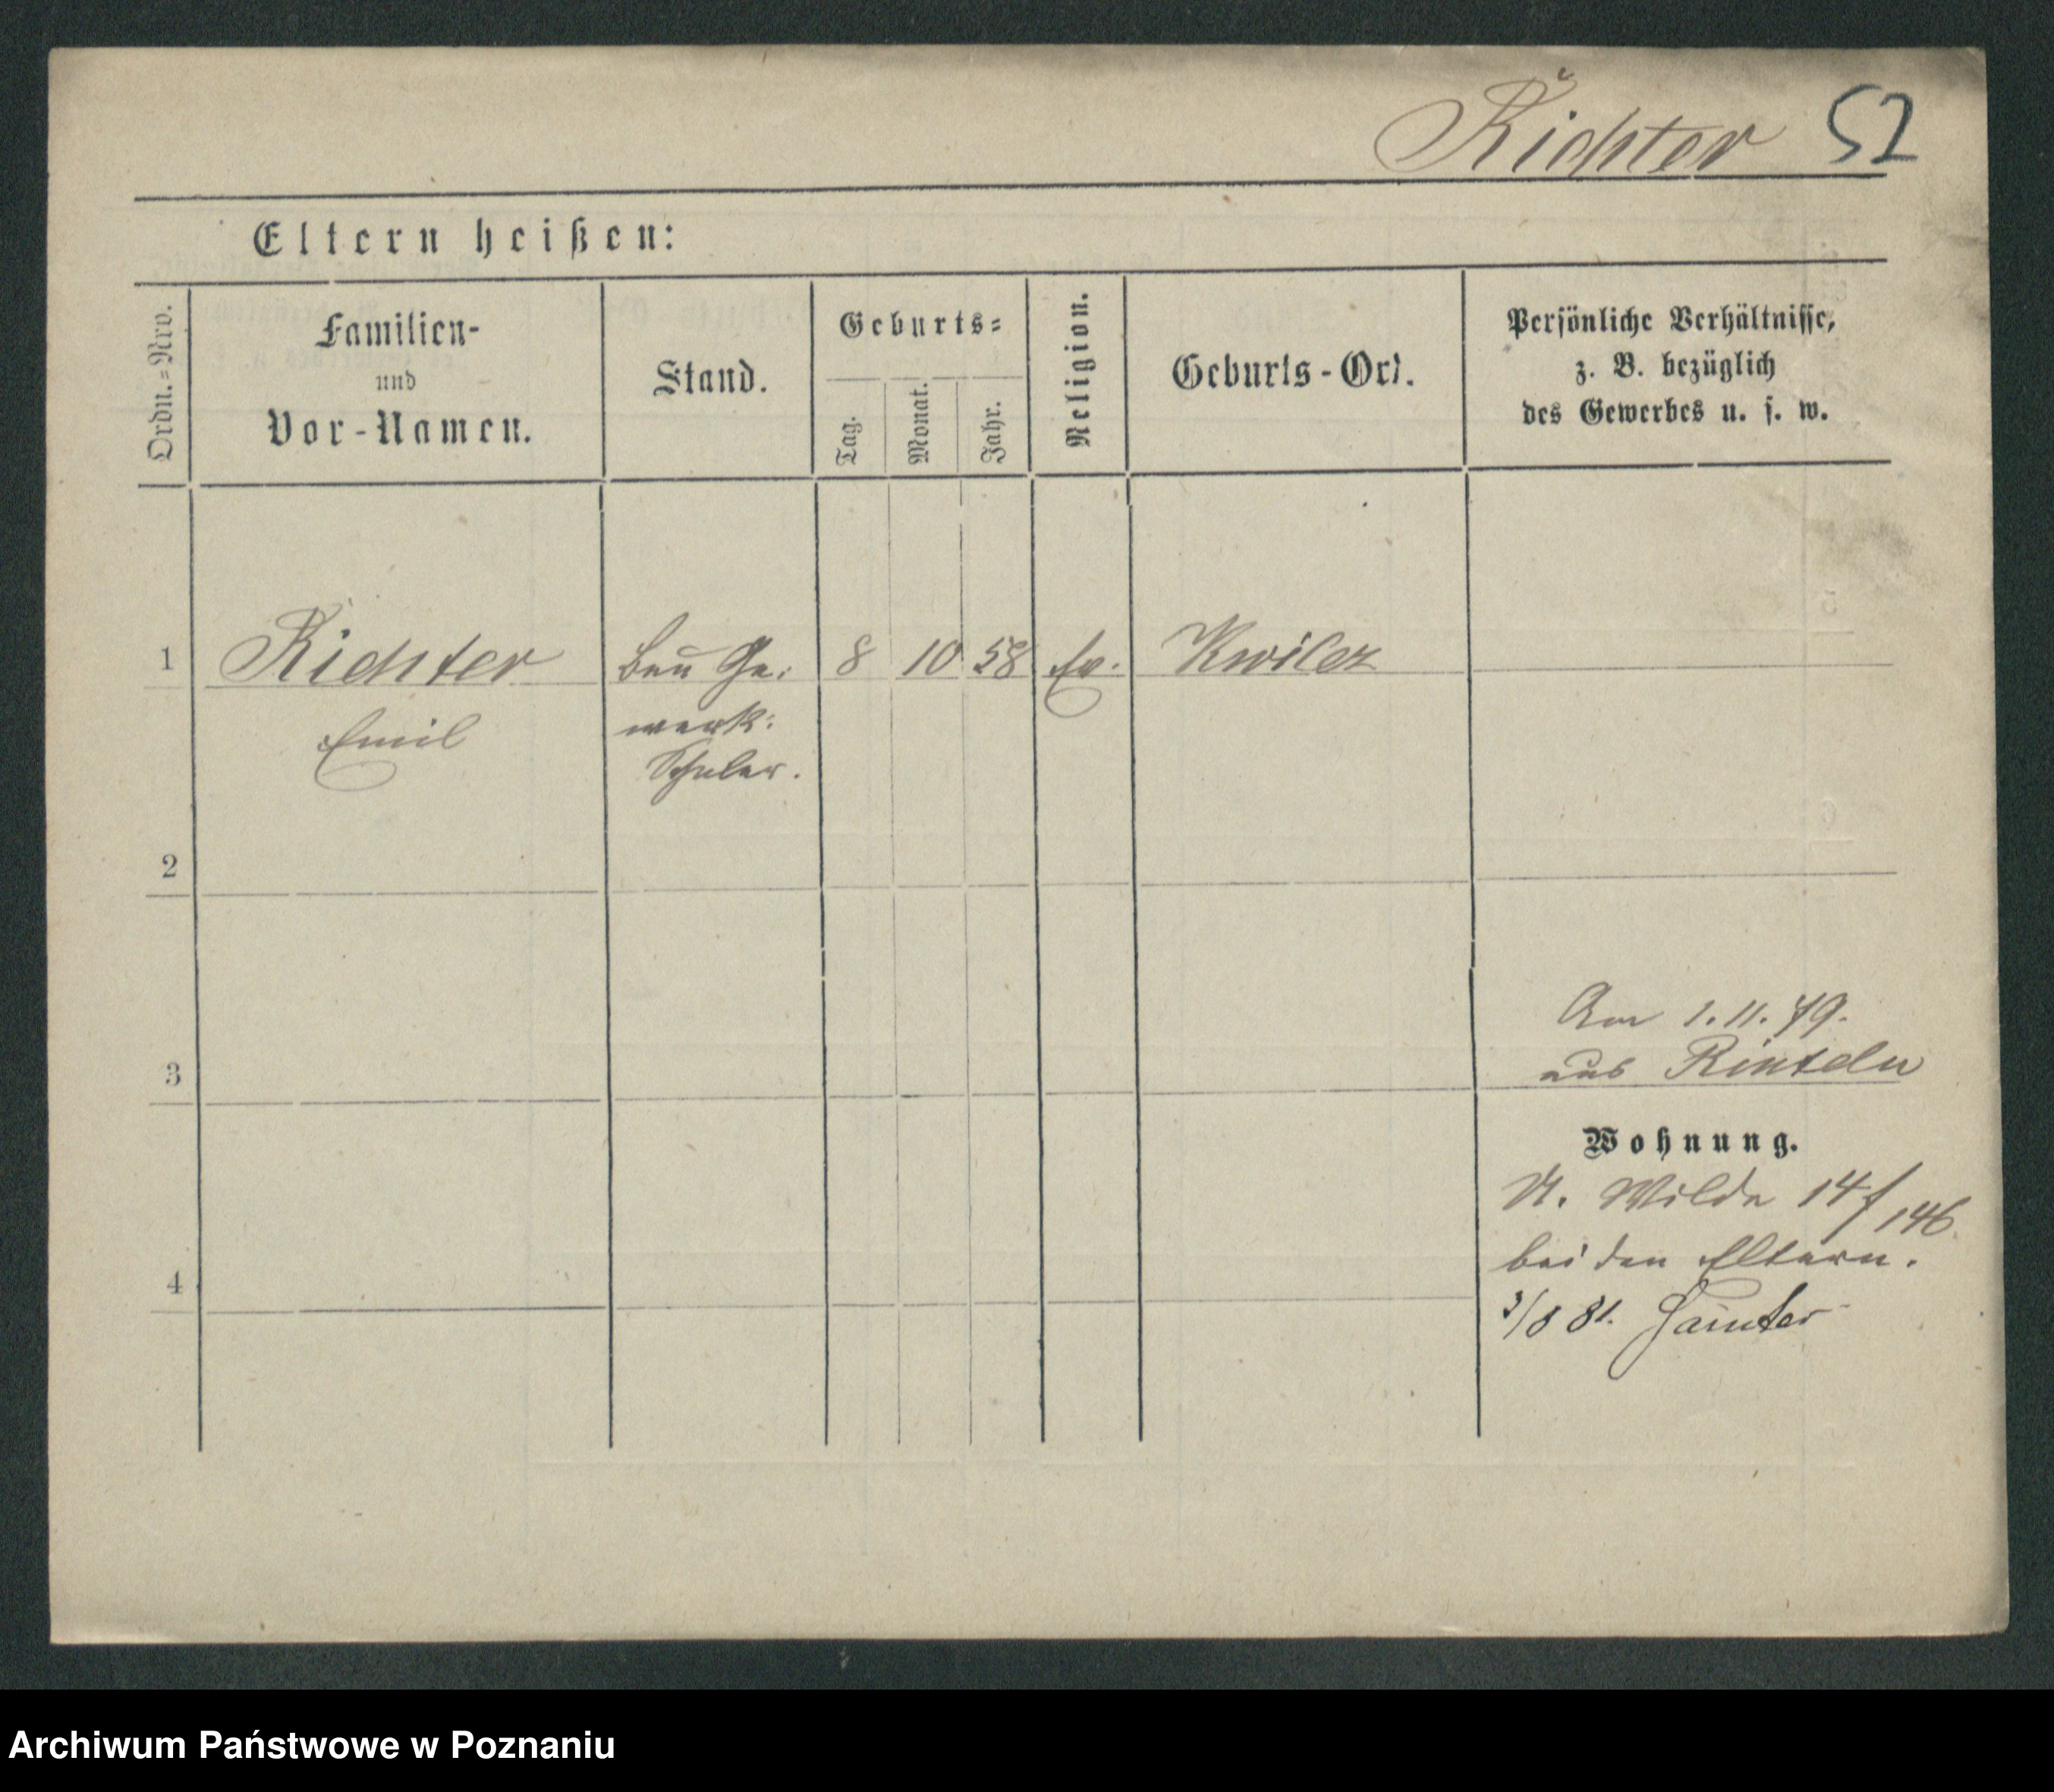 Richter 52
Eltern heißen:
Ordn.=Nro.
Familien-
und
Vor-Namen.
Stand.
Geburts=
Tag.
Monat.
Jahr.
Religion.
Geburts-Ort.
Persönliche Verhältnisse,
z. B. bezüglich
des Gewerbes u. s. w.
1 Richter Bau Ge- 8 10 58 Ev. Kwilcz
Emil werk-
Schuler.
2
3
Am 1.11.79.
aus Rinteln
Wohnung.
N. Wilda 14/146
bei den Eltern.
4
3/8 81.
Archiwum Państwowe w Poznaniu